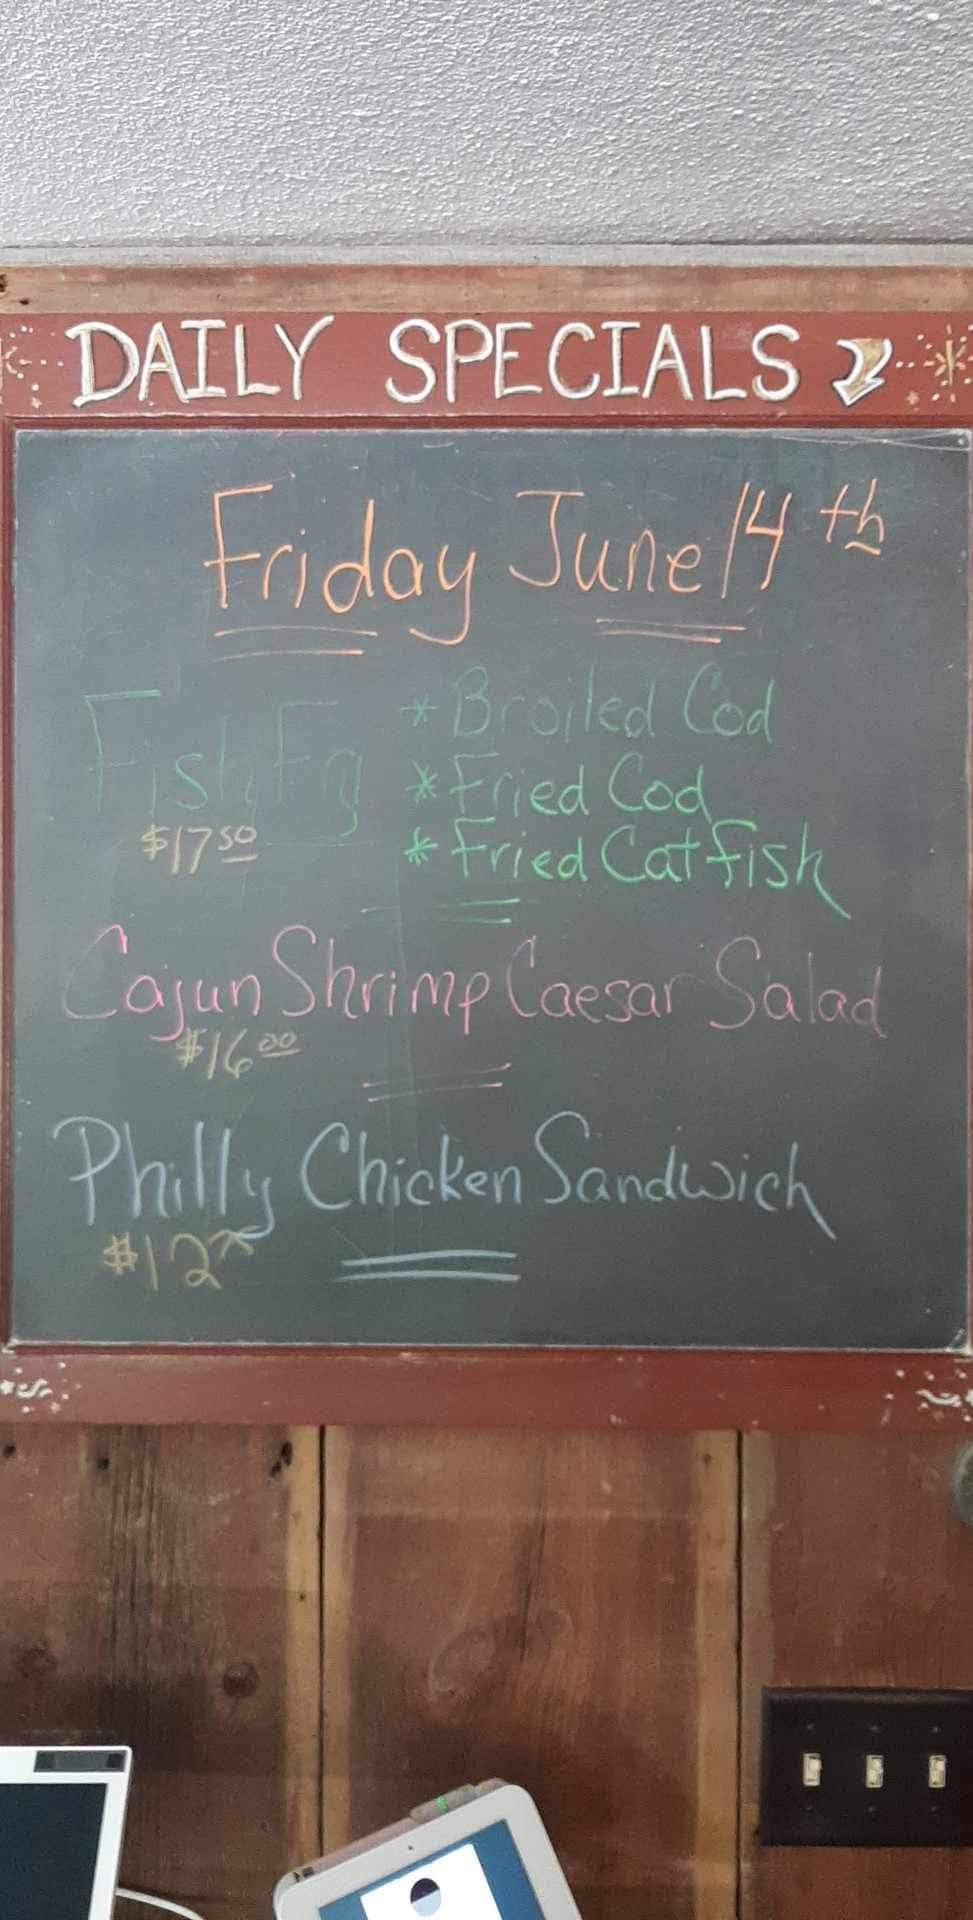 DAILY SPECIALS
Friday June 14th
Fish Fry
$17 50
* Broiled Cod
* Fried Cod
* Fried Catfish
Cajun Shrimp Caesar Salad
$16 00
Philly Chicken Sandwich
$12